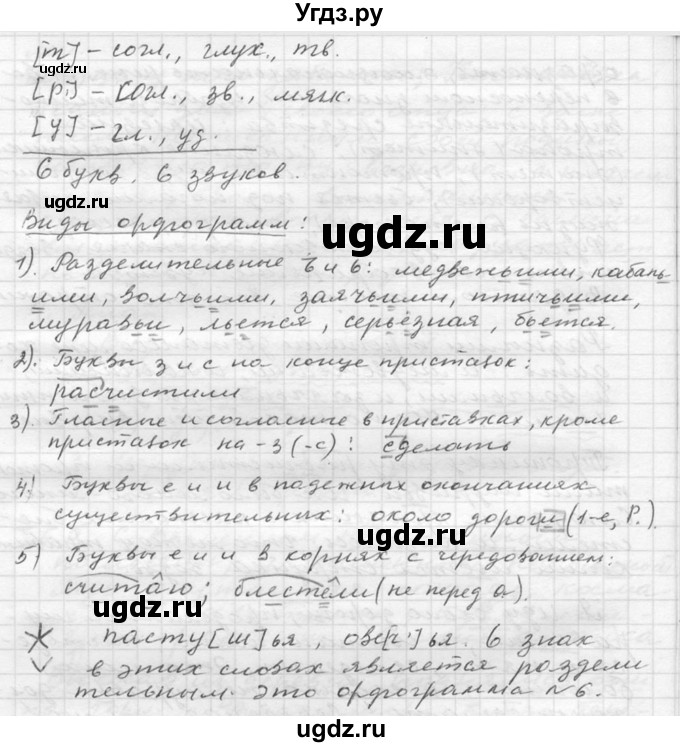 Угдз.ру
[т] - согл., глух., тв.
gdz.ru
[р'] - согл., зв., мягк.
[у] - гл., уд.
gdz.ru
6 букв, 6 звуков.
gdz.ru
Виды орфограмм:
ugdz.ru
1). Разделительные ъ и ь: медвежьими, кабань-
ими, волчьими, заячьими, птичьими,
муравьи, льется, серьёзная, бьется.
2). Буквы з и с на конце приставок:
ugdz.ru
расчистили
3). Гласные и согласные в приставках, кроме
приставок на -з (-с): сделать
ugdz.ru
4) Буквы е и и в падежных окончаниях
существительных: около дороги (1-е, Р.).
5) Буквы е и и в корнях с чередованием:
считаю; блестели (не перед а).
ugdz.ru
ugdz.ru
* пасту[ш]ья, ове[ч']ья. Ь знак
в этих словах является раздели
тельным. Это орфограмма №6.
ugdz.ru